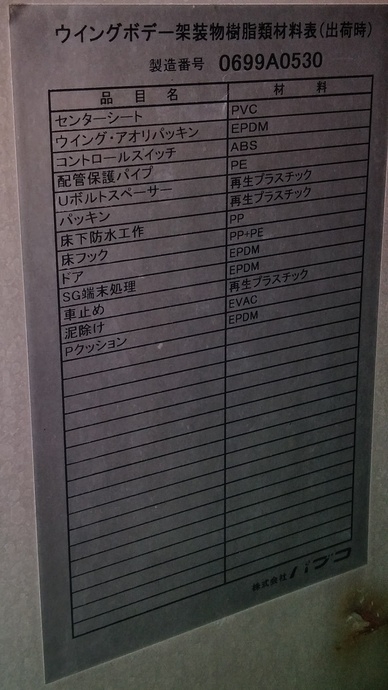 ウイングボデー架装物樹脂類材料表(出荷時)
製造番号 0699A0530
品目名 材料
センターシート PVC
ウイング・アオリパッキン EPDM
コントロールスイッチ ABS
配管保護パイプ PE
Uボルトスペーサー 再生プラスチック
パッキン 再生プラスチック
床下防水工作 PP
床フック PP+PE
ドア EPDM
SG端末処理 EPDM
車止め 再生プラスチック
泥除け EVAC
Pクッション EPDM
株式会社パブコ